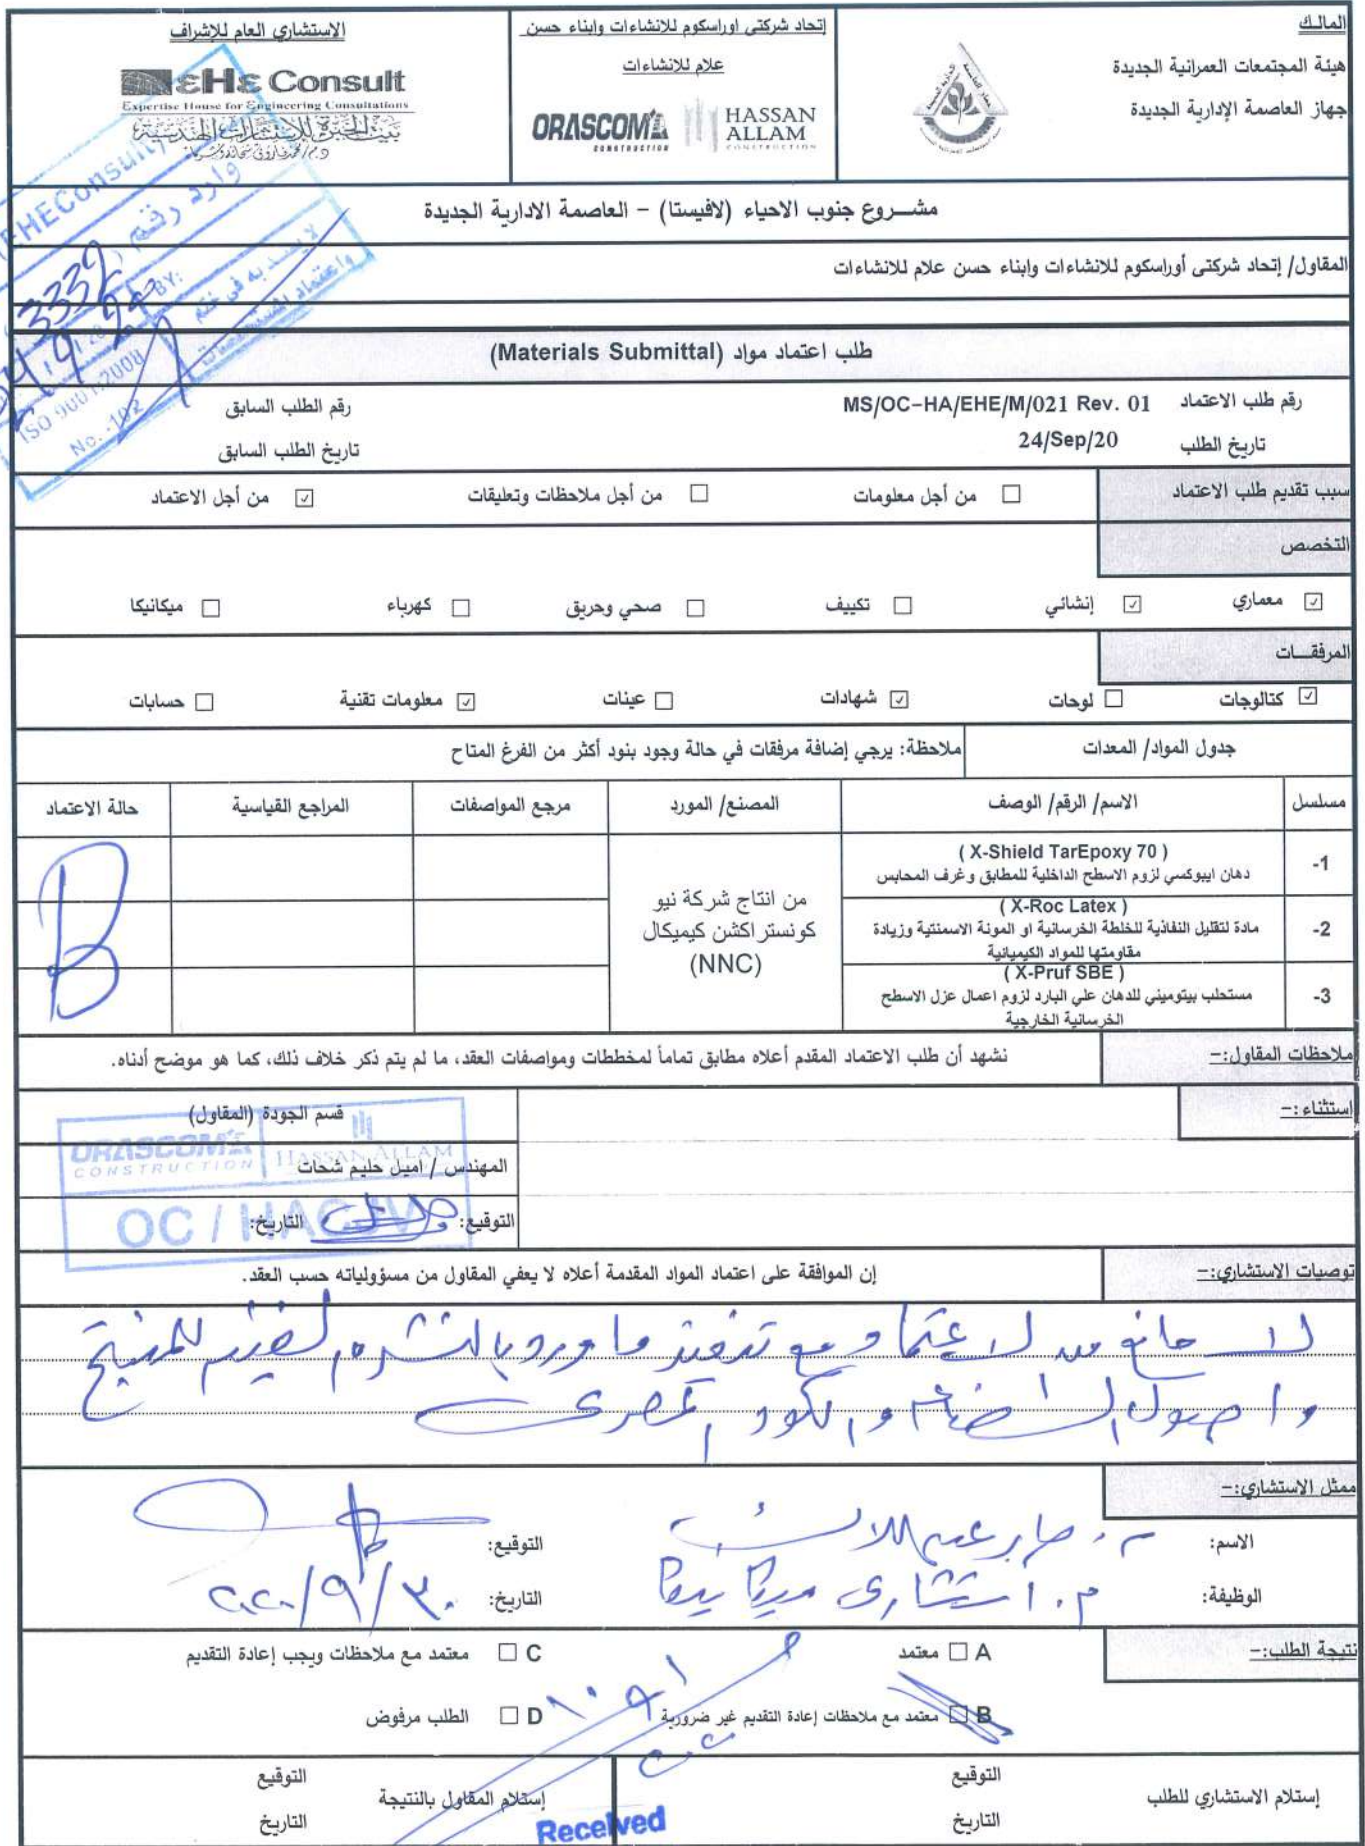 المالك
هيئة المجتمعات العمرانية الجديدة
جهاز العاصمة الإدارية الجديدة
إتحاد شركتى اوراسكوم للانشاءات وابناء حسن
علام للانشاءات
ORASCOM CONSTRUCTION
HASSAN ALLAM CONSTRUCTION
الاستشاري العام للإشراف
EHE Consult
Expertise House for Engineering Consultations
بيت الخبرة للاستشارات الهندسية
EHEConsult
وارد رقم
3332
BY:
لا يعتد به فى ختم
ISO 9001:2008
No. -102
مشـــروع جنوب الاحياء (لافيستا) - العاصمة الادارية الجديدة
المقاول/ إتحاد شركتى أوراسكوم للانشاءات وابناء حسن علام للانشاءات
طلب اعتماد مواد (Materials Submittal)
رقم طلب الاعتماد MS/OC-HA/EHE/M/021 Rev. 01
رقم الطلب السابق
تاريخ الطلب 24/Sep/20
تاريخ الطلب السابق
سبب تقديم طلب الاعتماد
☐ من أجل معلومات
☐ من أجل ملاحظات وتعليقات
☑ من أجل الاعتماد
التخصص
☑ معماري
☑ إنشائي
☐ تكييف
☐ صحي وحريق
☐ كهرباء
☐ ميكانيكا
المرفقـــات
☑ كتالوجات
☐ لوحات
☑ شهادات
☐ عينات
☑ معلومات تقنية
☐ حسابات
جدول المواد/ المعدات
ملاحظة: يرجي إضافة مرفقات في حالة وجود بنود أكثر من الفرغ المتاح
مسلسل
الاسم/ الرقم/ الوصف
المصنع/ المورد
مرجع المواصفات
المراجع القياسية
حالة الاعتماد
-1
( X-Shield TarEpoxy 70 )
دهان ايبوكسي لزوم الاسطح الداخلية للمطابق وغرف المحابس
-2
( X-Roc Latex )
مادة لتقليل النفاذية للخلطة الخرسانية او المونة الاسمنتية وزيادة
مقاومتها للمواد الكيميائية
-3
( X-Pruf SBE )
مستحلب بيتوميني للدهان علي البارد لزوم اعمال عزل الاسطح
الخرسانية الخارجية
من انتاج شركة نيو
كونستراكشن كيميكال
(NNC)
B
ملاحظات المقاول:-
نشهد أن طلب الاعتماد المقدم أعلاه مطابق تماماً لمخططات ومواصفات العقد، ما لم يتم ذكر خلاف ذلك، كما هو موضح أدناه.
إستثناء:-
قسم الجودة (المقاول)
المهندس / اميل حليم شحات
التوقيع:
التاريخ:
ORASCOM CONSTRUCTION
HASSAN ALLAM
OC / HACJV
توصيات الاستشاري:-
إن الموافقة على اعتماد المواد المقدمة أعلاه لا يعفي المقاول من مسؤولياته حسب العقد.
لا مانع من الاعتماد مع تنفيذ ما ورد بالنشره الفنيه للمنتج
واصول الصناعة والكود المصرى
ممثل الاستشاري:-
الاسم:
التوقيع:
الوظيفة: م. استشارى ميكانيكا
التاريخ: ٣٠/٩/٢٠٢٠
نتيجة الطلب:-
A ☐ معتمد
C ☐ معتمد مع ملاحظات ويجب إعادة التقديم
B ☐ معتمد مع ملاحظات إعادة التقديم غير ضرورية
D ☐ الطلب مرفوض
إستلام الاستشاري للطلب
التوقيع
التاريخ
إستلام المقاول بالنتيجة
التوقيع
التاريخ
Received